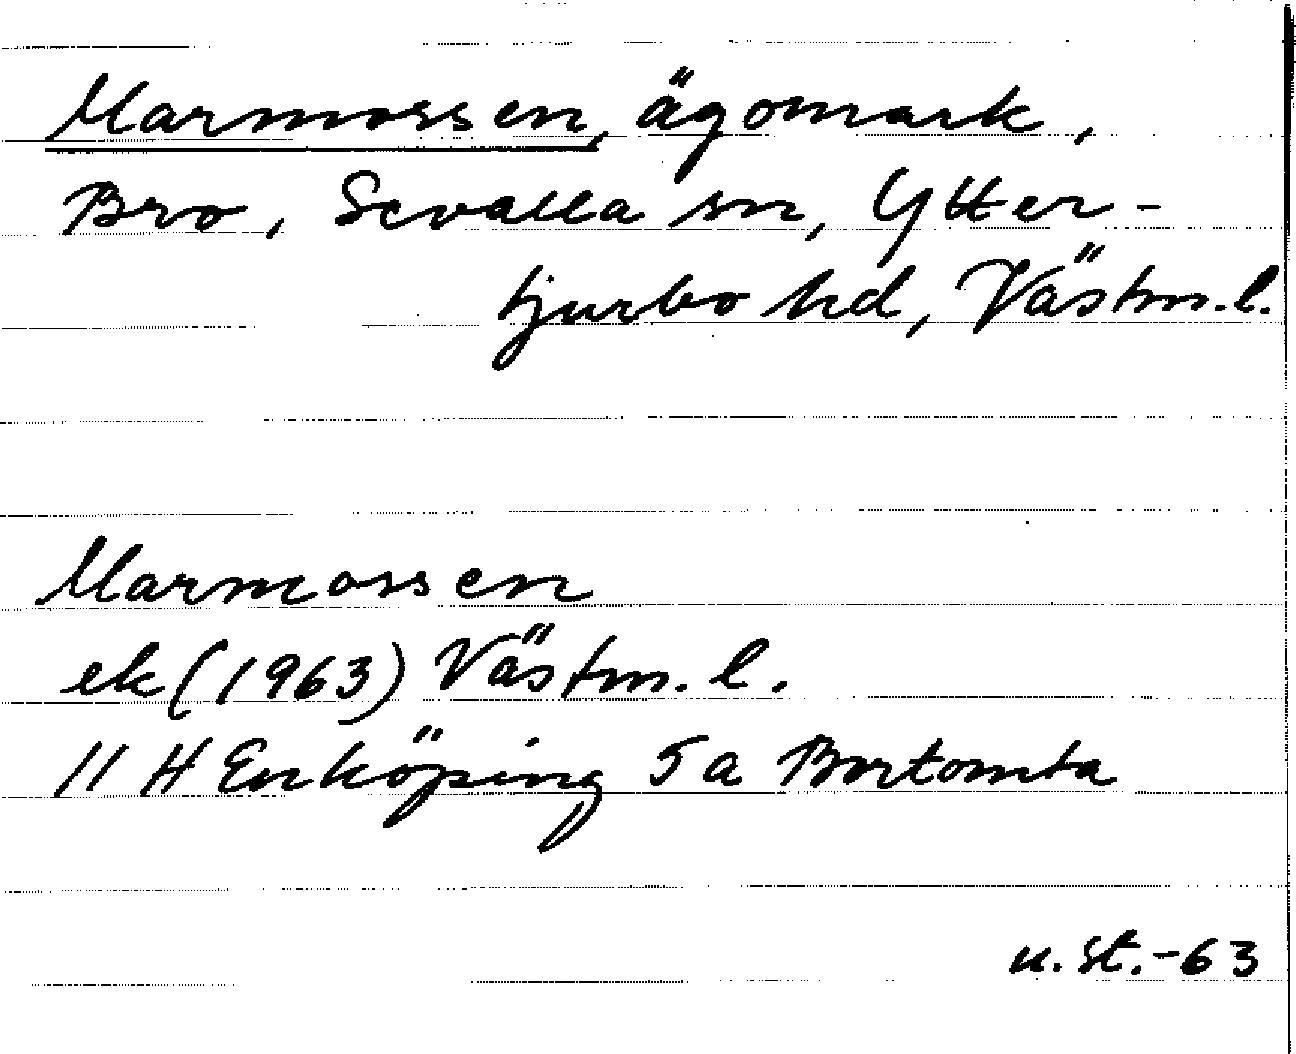 Marmossen, ägomark,
Bro, Sevalla sn, Ytter-
tjurbo hd, Västm.l.
Marmossen
ek (1963) Västm.l.
11 H Enköping 5a Bortomta
u.st.-63